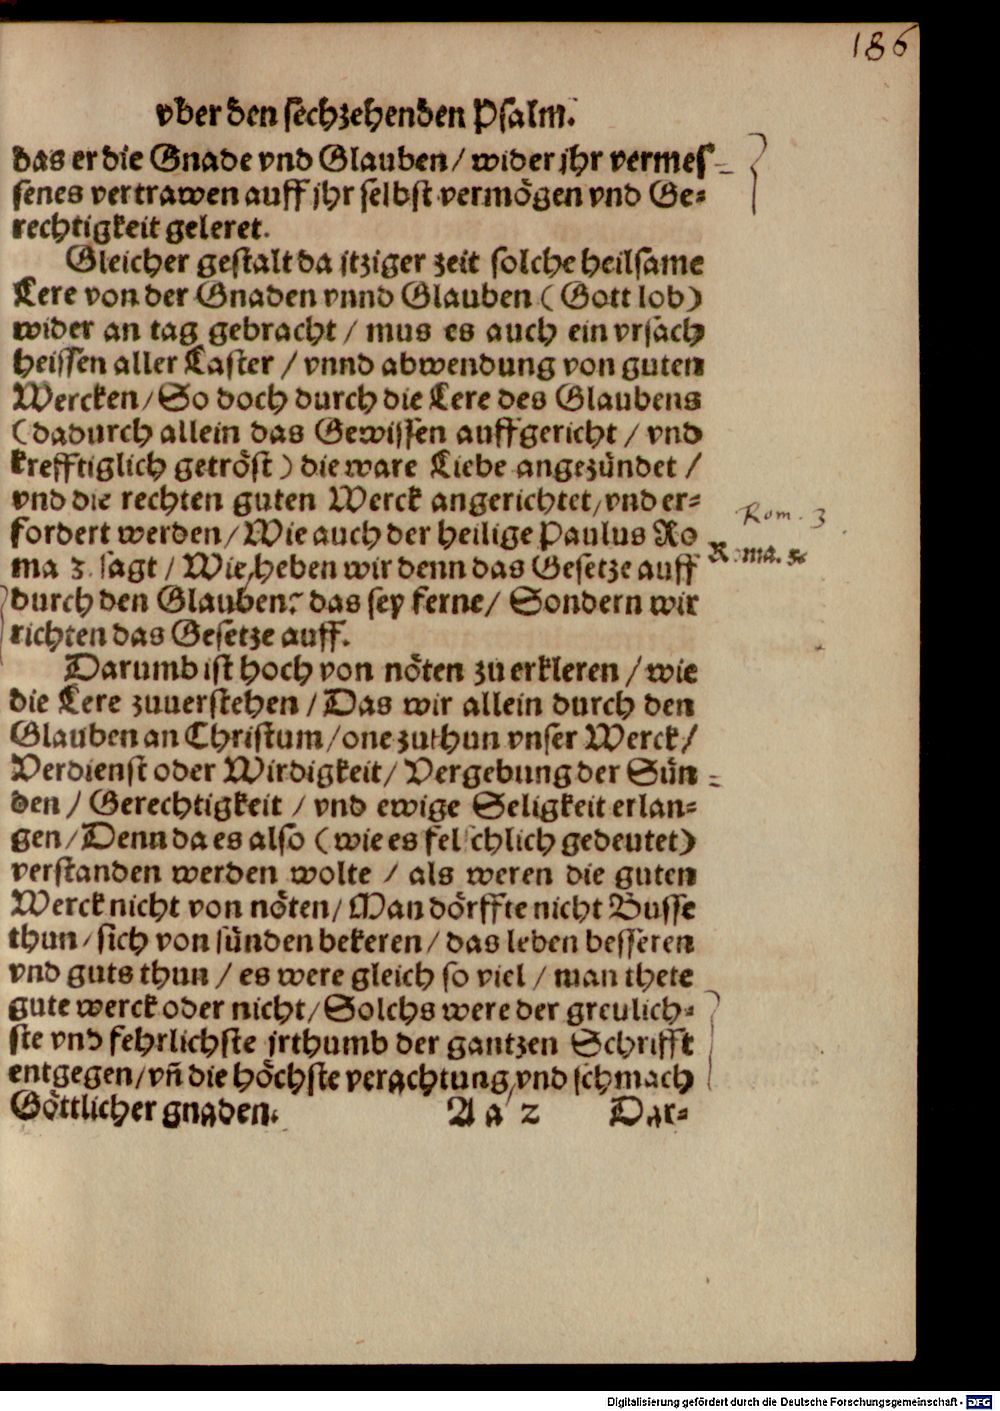 186
vber den sechzehenden Psalm.
das er die Gnade vnd Glauben / wider jhr vermes-
senes vertrawen auff jhr selbst vermögen vnd Ge-
rechtigkeit geleret.
Gleicher gestalt da itziger zeit solche heilsame
Lere von der Gnaden vnnd Glauben (Gott lob)
wider an tag gebracht / mus es auch ein vrsach
heissen aller Laster / vnnd abwendung von guten
Wercken / So doch durch die Lere des Glaubens
(dadurch allein das Gewissen auffgericht / vnd
krefftiglich getröst) die ware Liebe angezündet /
vnd die rechten guten Werck angerichtet / vnd er-
fordert werden / Wie auch der heilige Paulus Ro
Rom. 3
Roma. 3.
ma 3. sagt / Wie / heben wir denn das Gesetze auff
durch den Glauben? das sey ferne / Sondern wir
richten das Gesetze auff.
Darumb ist hoch von nöten zu erkleren / wie
die Lere zuuerstehen / Das wir allein durch den
Glauben an Christum / one zuthun vnser Werck /
Verdienst oder Wirdigkeit / Vergebung der Sün-
den / Gerechtigkeit / vnd ewige Seligkeit erlan-
gen / Denn da es also (wie es felschlich gedeutet)
verstanden werden wolte / als weren die guten
Werck nicht von nöten / Man dörffte nicht Busse
thun / sich von sünden bekeren / das leben besseren
vnd guts thun / es were gleich so viel / man thete
gute werck oder nicht / Solchs were der greulich-
ste vnd fehrlichste jrthumb der gantzen Schrifft
entgegen / vñ die höchste verachtung / vnd schmach
Göttlicher gnaden.
Aa 2 Dar-
Digitalisierung gefördert durch die Deutsche Forschungsgemeinschaft - DFG